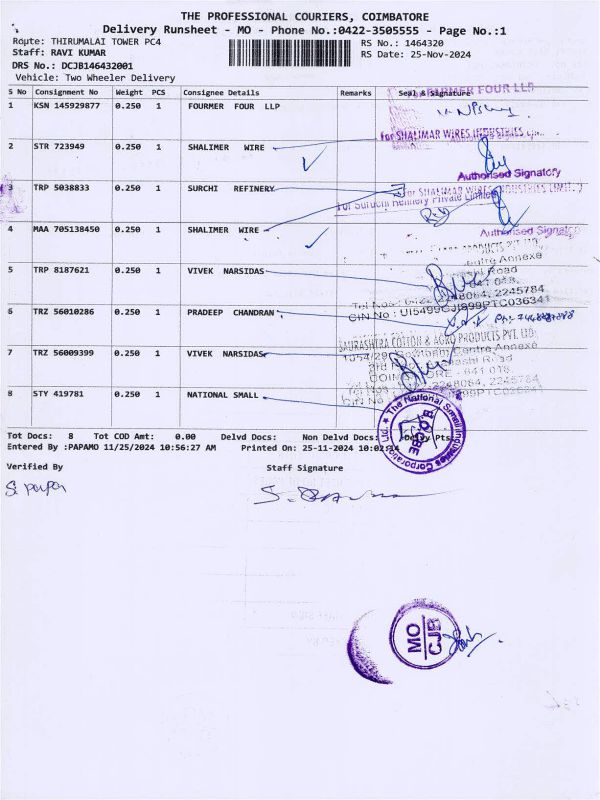 THE PROFESSIONAL COURIERS, COIMBATORE
Delivery Runsheet - MO - Phone No.:0422-3505555 - Page No.:1
Route: THIRUMALAI TOWER PC4
RS No.: 1464320
Staff: RAVI KUMAR
RS Date: 25-Nov-2024
DRS No.: DCJB146432001
Vehicle: Two Wheeler Delivery
S No Consignment No Weight PCS Consignee Details Remarks Seal & Signature
1 KSN 145929877 0.250 1 FOURMER FOUR LLP
FOUR LLP
For SHALIMAR WIRES INDUSTRIES
2 STR 723949 0.250 1 SHALIMER WIRE
Authorised Signatory
3 TRP 5038833 0.250 1 SURCHI REFINERY
For SHALIMAR WIRES INDUSTRIES
For Suruchi Refinery Private Limited
4 MAA 705138450 0.250 1 SHALIMER WIRE
Authorised
PRODUCTS PVT. LTD.
Centre Annexe
5 TRP 8187621 0.250 1 VIVEK NARSIDAS
Road
641 018.
2245784
CIN No : U15499
6 TRZ 56010286 0.250 1 PRADEEP CHANDRAN
SAURASHTRA COTTON & AGRO PRODUCTS PVT. LTD.
Centre Annexe
7 TRZ 56009399 0.250 1 VIVEK NARSIDAS
Road
641 018.
2245784
8 STY 419781 0.250 1 NATIONAL SMALL
The National Small Industries Corporation Ltd.
Tot Docs: 8 Tot COD Amt: 0.00 Delvd Docs: Non Delvd Docs:
Entered By :PAPAMO 11/25/2024 10:56:27 AM Printed On: 25-11-2024
Verified By Staff Signature
S. papa
MO
CJB